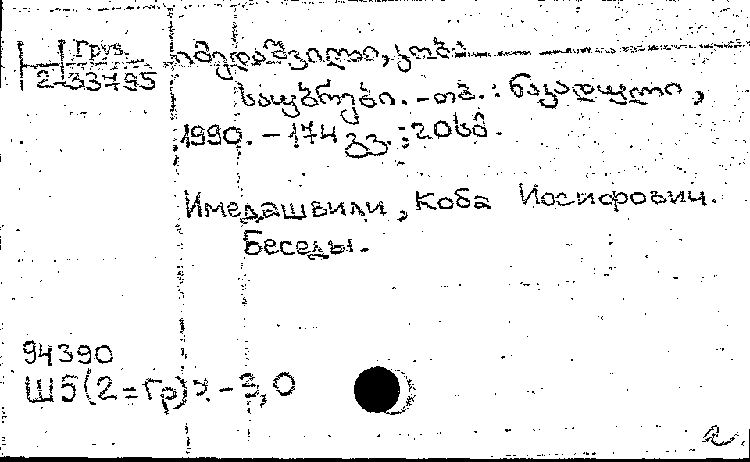 Груз. იმედაშვილი, კობა
2-33795
საუბრები. - თბ.: ნაკადული,
1990. - 174 გვ.; 20სმ.
Имедашвили, Коба Иосифович.
Беседы.
94390
Ш5(2=Гр)7-3,0